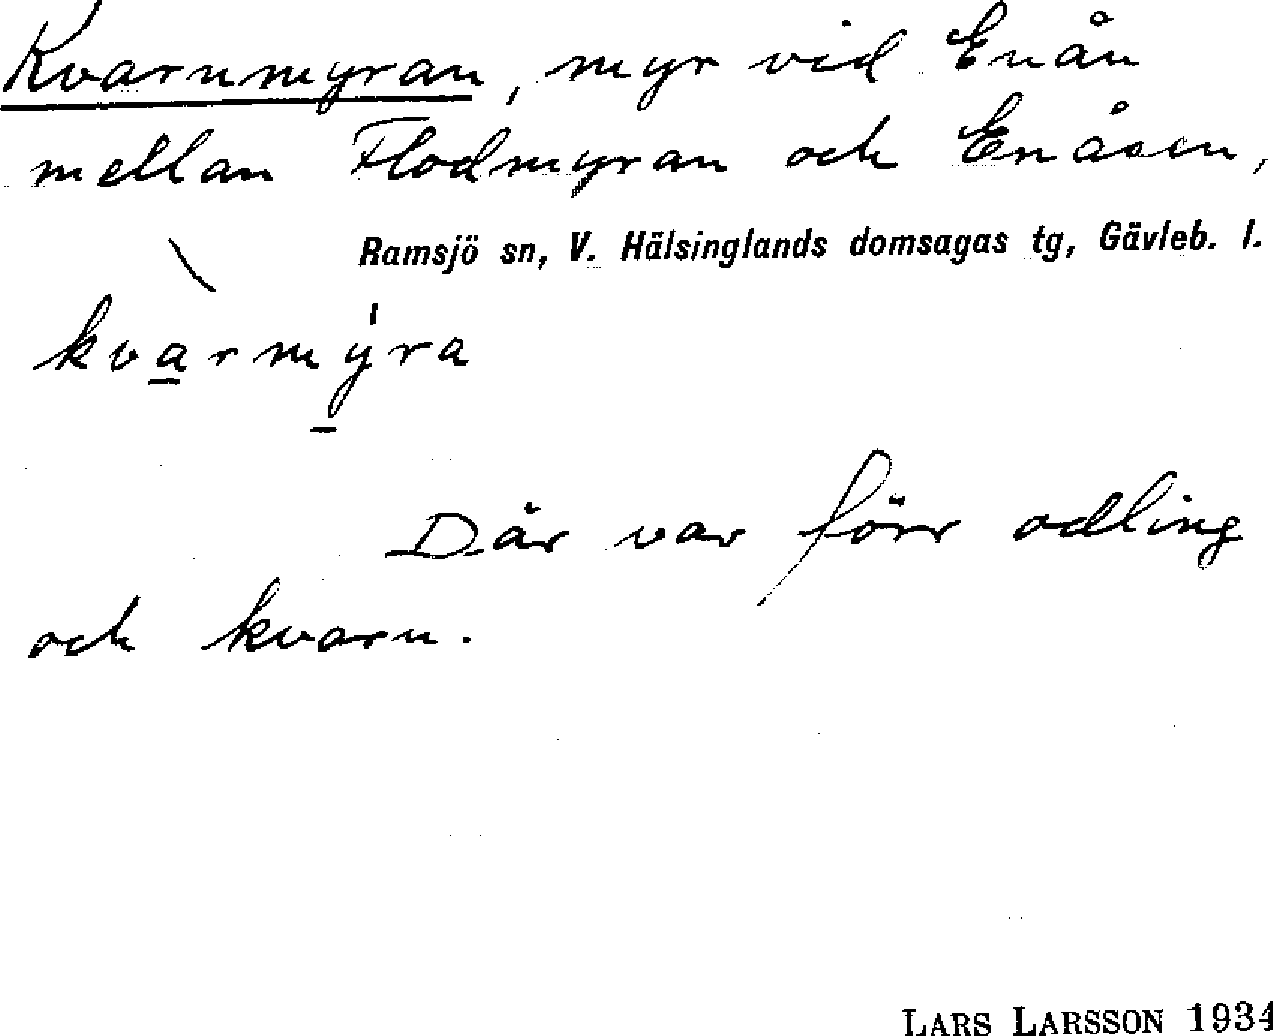 Kvarnmyran, myr vid Enån
mellan Flodmyran och Enåsen,
Ramsjö sn, V. Hälsinglands domsagas tg, Gävleb. l.
kvàrmýra
Där var förr odling
och kvarn.
LARS LARSSON 1934